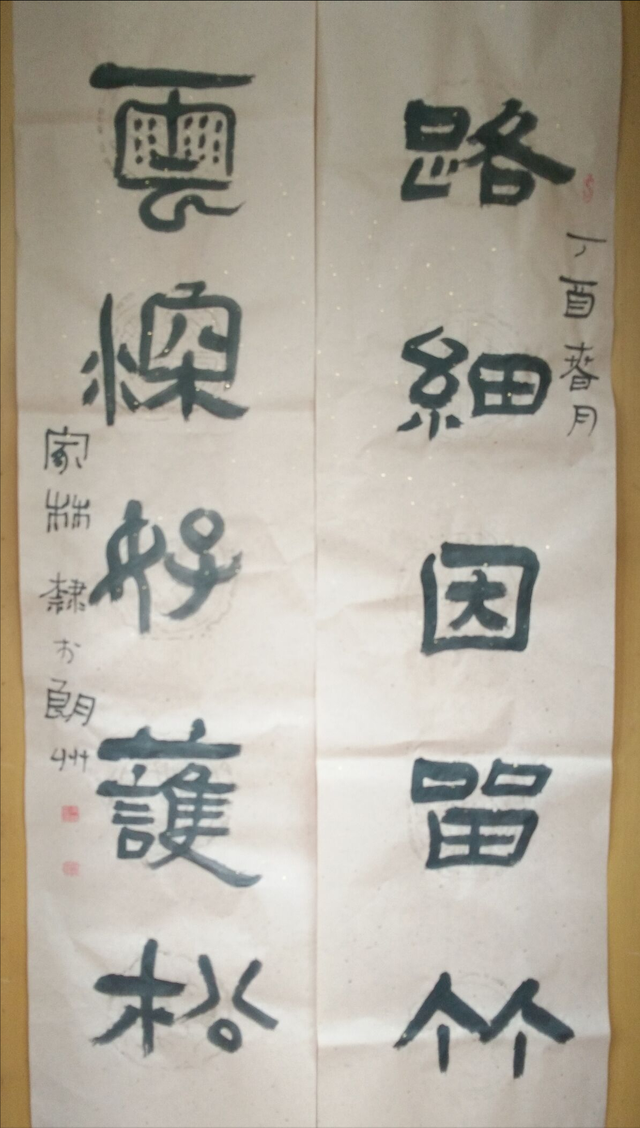 路細因留竹
丁酉春月
雲深好護松
家林隸於朗州